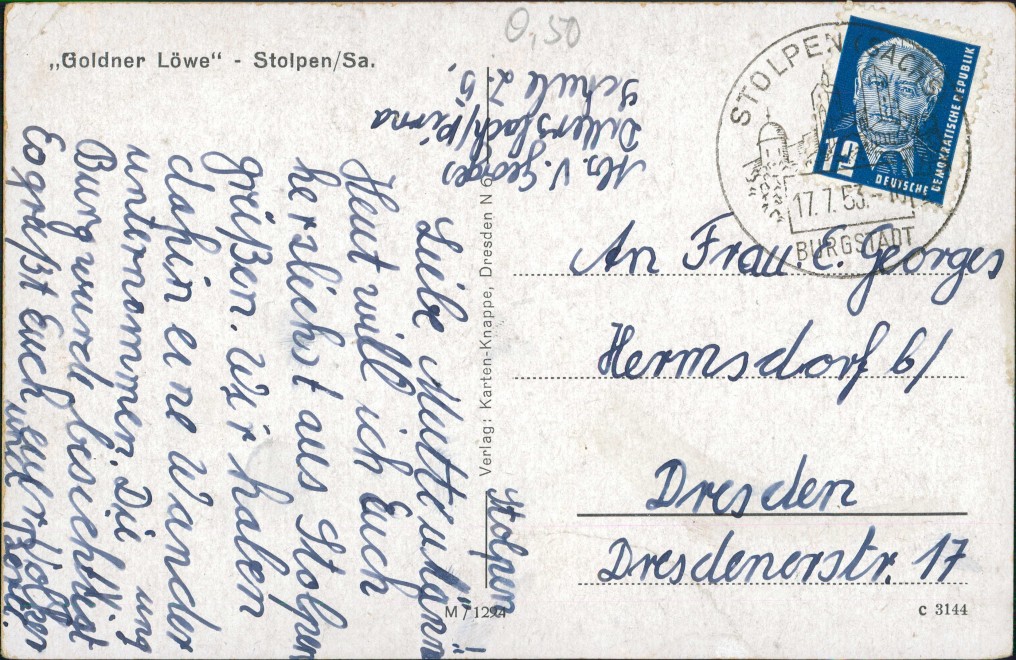 „Goldner Löwe“ - Stolpen/Sa.
0,50
STOLPEN (SACHS
17.7.53.-
BURGSTADT
12
DEUTSCHE
DEMOKRATISCHE REPUBLIK
Abs. V. Georges
Dittersbach/Pirna
Schule Z. 5.
Stolpen
Liebe Mutti u.
Heut will ich Euch
herzlichst aus Stolpen
grüßen. Wir haben
dahin eine Wander
ung
unternommen. Die
Burg wurd besichtigt
Es grüßt Euch euer
Verlag: Karten-Knappe, Dresden N 6
An Frau E. Georges
Hermsdorf b/
Dresden
Dresdenerstr. 17
M/1294
c 3144